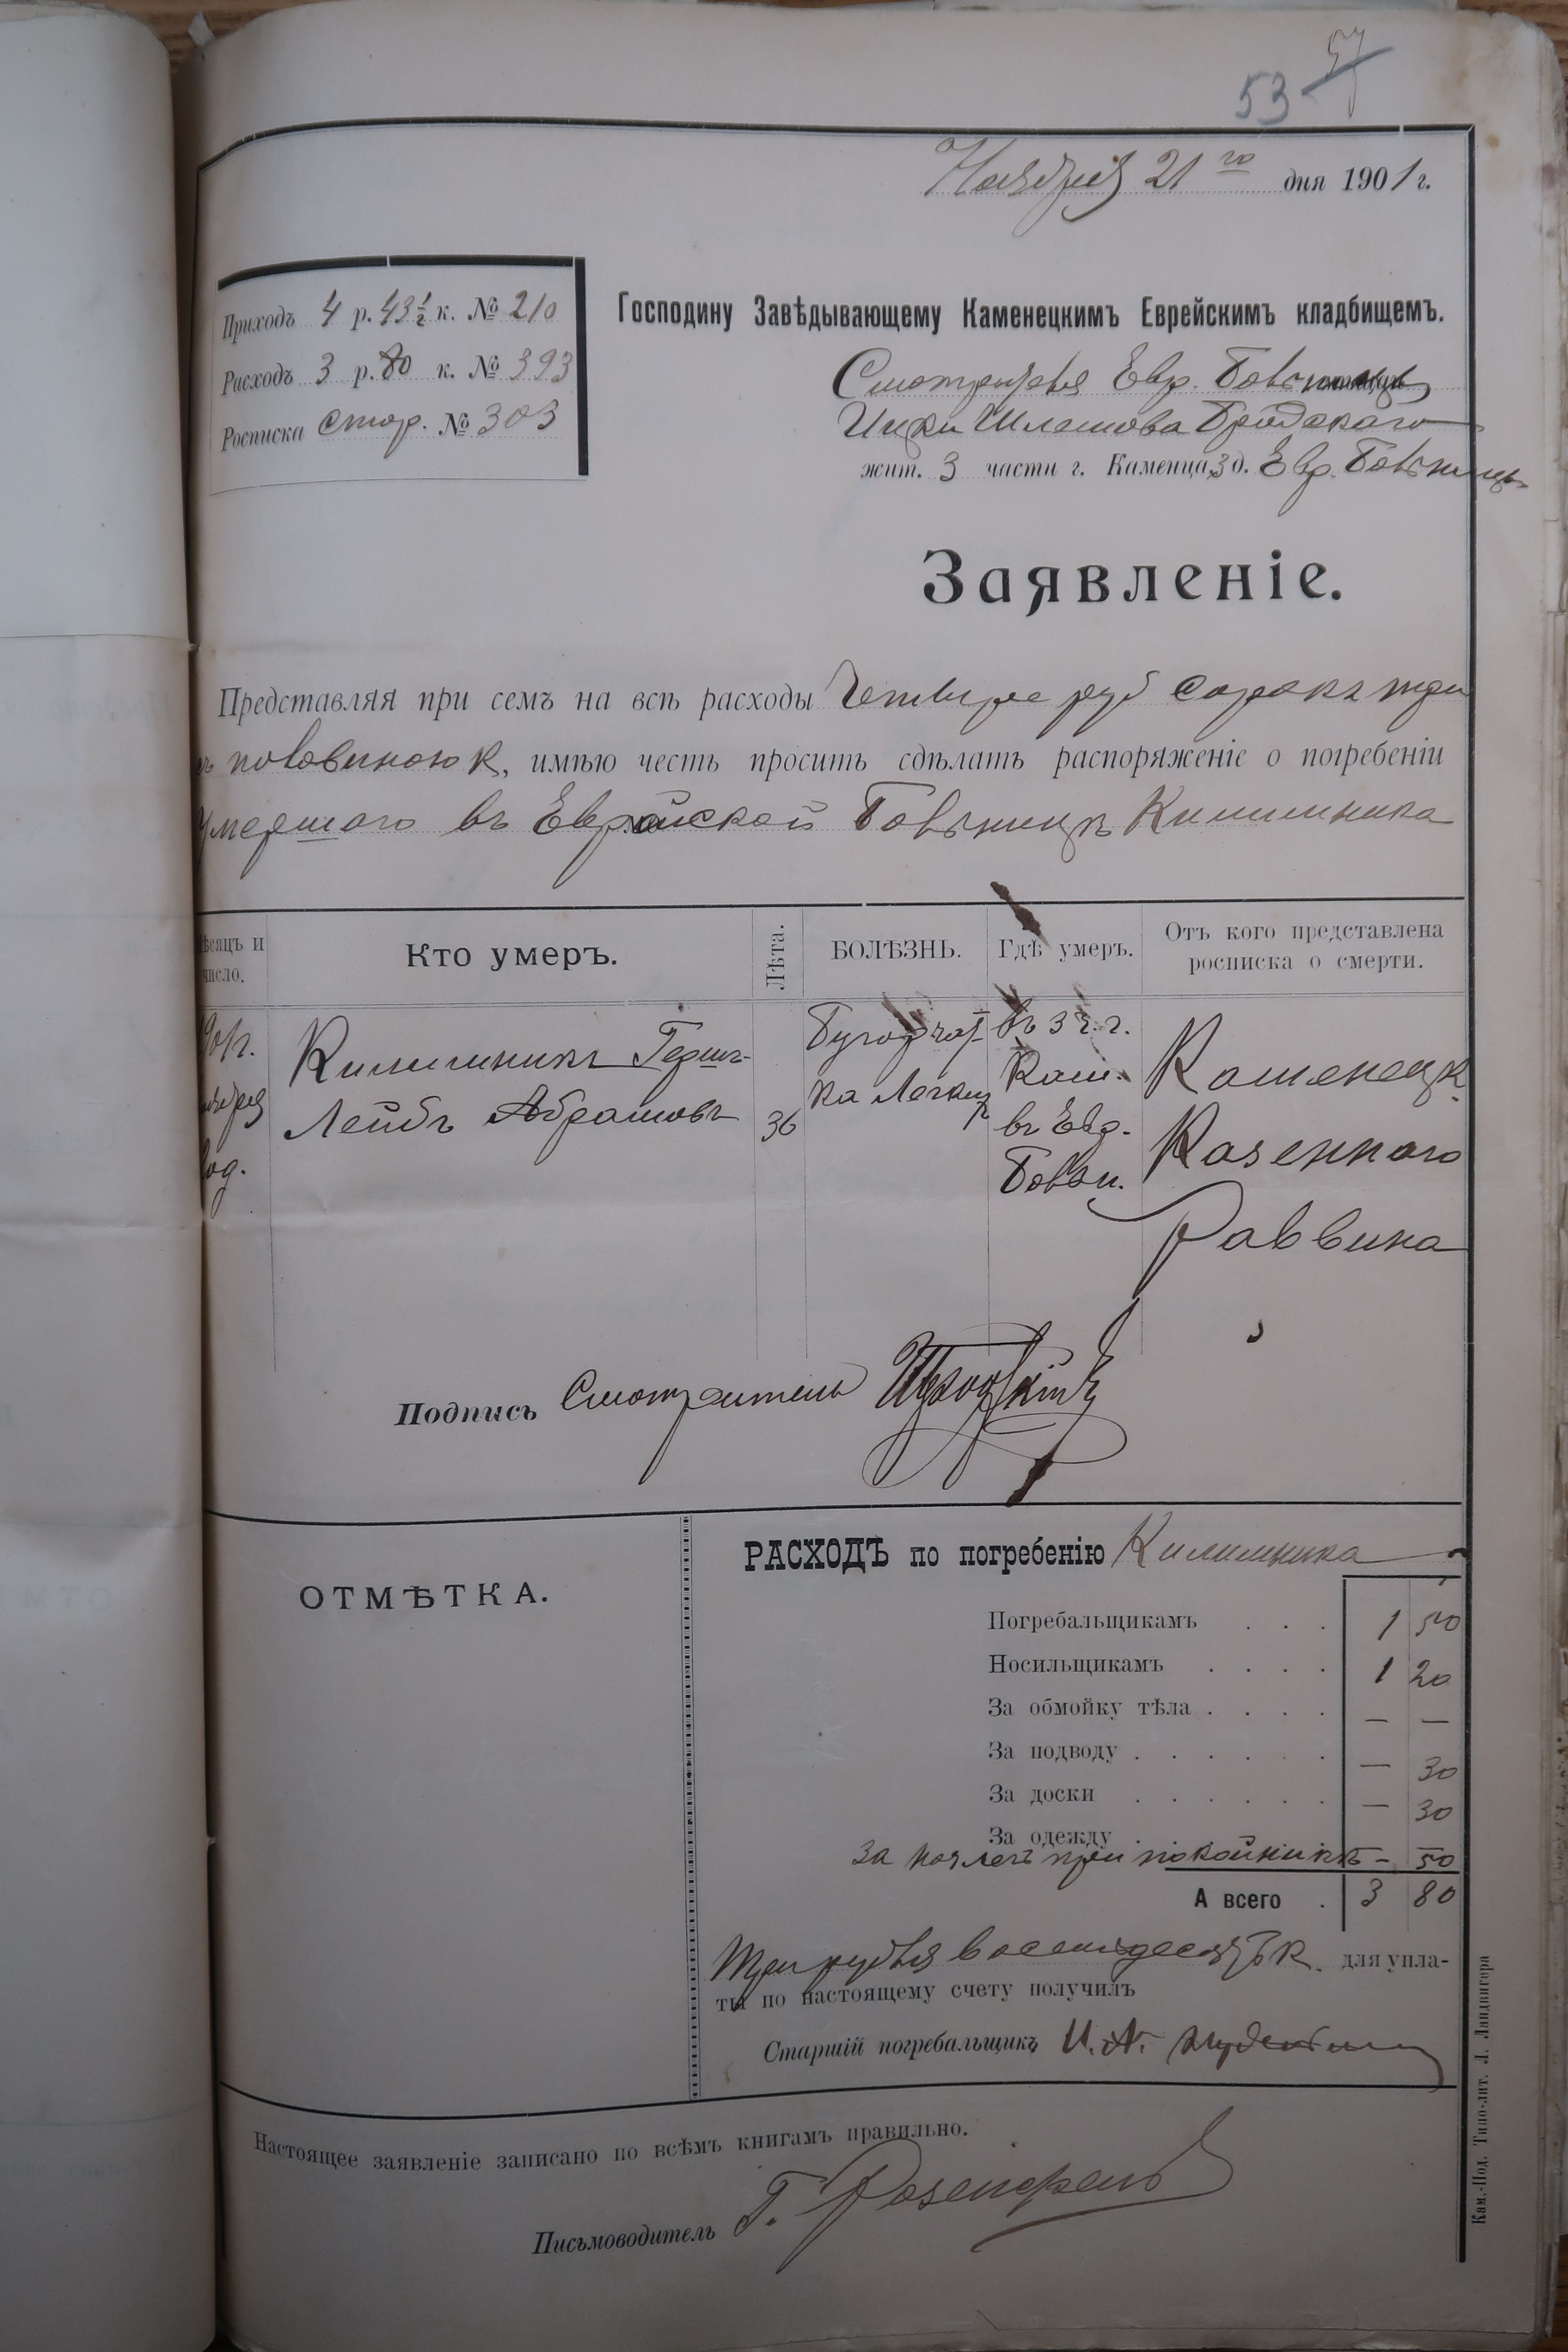 53 57
Ноября 21го дня 1901 г.
Приходъ 4 р. 43 1/2 к. № 210
Расходъ 3 р. 80 к. № 393
Росписка стор. № 303
Господину Завѣдывающему Каменецкимъ Еврейскимъ кладбищемъ.
Смотрителя Евр. Больницы
Ицки Шлемова Бродскаго
жит. 3 части г. Каменца, з д. Евр. Больницы
Заявленіе.
Представляя при семъ на всѣ расходы Четыре руб сорокъ три
съ половиною к, имѣю честь просить сдѣлать распоряженіе о погребеніи
Умершаго въ Еврейской Больницѣ Килимника
ѣсяцъ и число.
Кто умеръ.
Лѣта.
БОЛѢЗНЬ.
Гдѣ умеръ.
Отъ кого представлена росписка о смерти.
ноября
Килимникъ Герш-
Лейбъ Абрамовъ
36
Бугорчат-
ка Легкихъ
въ 3 ч. г.
Кам.
въ Евр.
Больн.
Каменецк.
Казеннаго
Раввина
Подпись Смотритель
ОТМѢТКА.
РАСХОДЪ по погребенію Килимника
Погребальщикамъ . . . 1 50
Носильщикамъ . . . . 1 20
За обмойку тѣла . . . . — —
За подводу . . . . . . — 30
За доски . . . . . . — 30
За одежду .
за ночлегъ при покойникѣ — 50
А всего . 3 80
Три рубля восемьдесятъ к. для упла-
ты по настоящему счету получилъ
Старшій погребальщикъ И. А.
Настоящее заявленіе записано по всѣмъ книгамъ правильно.
Письмоводитель Г. Розенфельд
Кам.-Под. Типо-лит. Л. Ландвигера